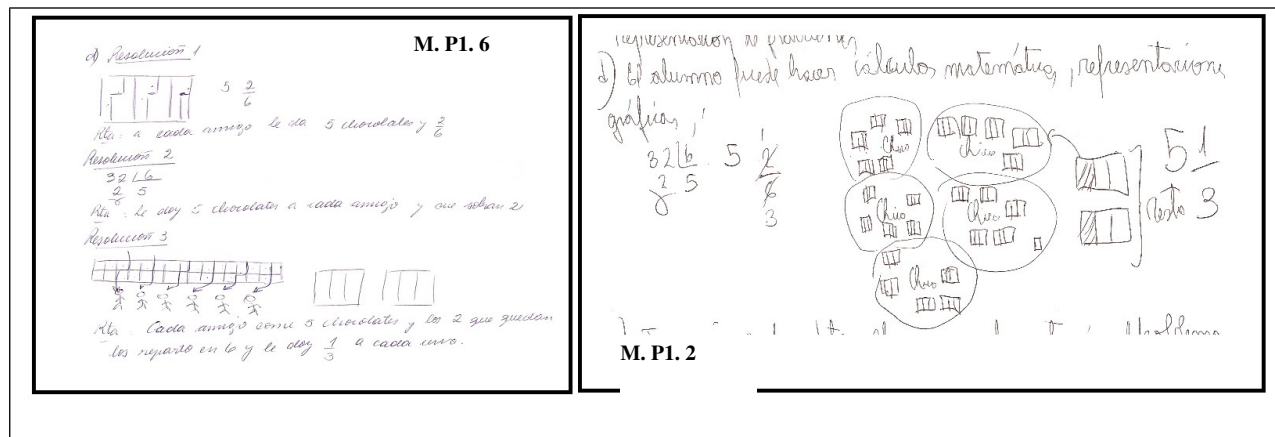 M. P1. 6
d) Resolución 1
5 2/6
Rta: a cada amigo le da 5 chocolates y 2/6
Resolución 2
32 6
2 5
6
Rta: Le doy 5 chocolates a cada amigo y me sobran 2
Resolución 3
Rta: Cada amigo come 5 chocolates y los 2 que quedan
los reparto en 6 y le doy 1/3 a cada uno.
representación de problemas
d) El alumno puede hacer cálculos matemáticos, representaciones
gráficas,
32 6 5 2/6 1/3
2 5
Chico
Chico
Chico
Chico
Chico
Resto
5 1/3
M. P1. 2